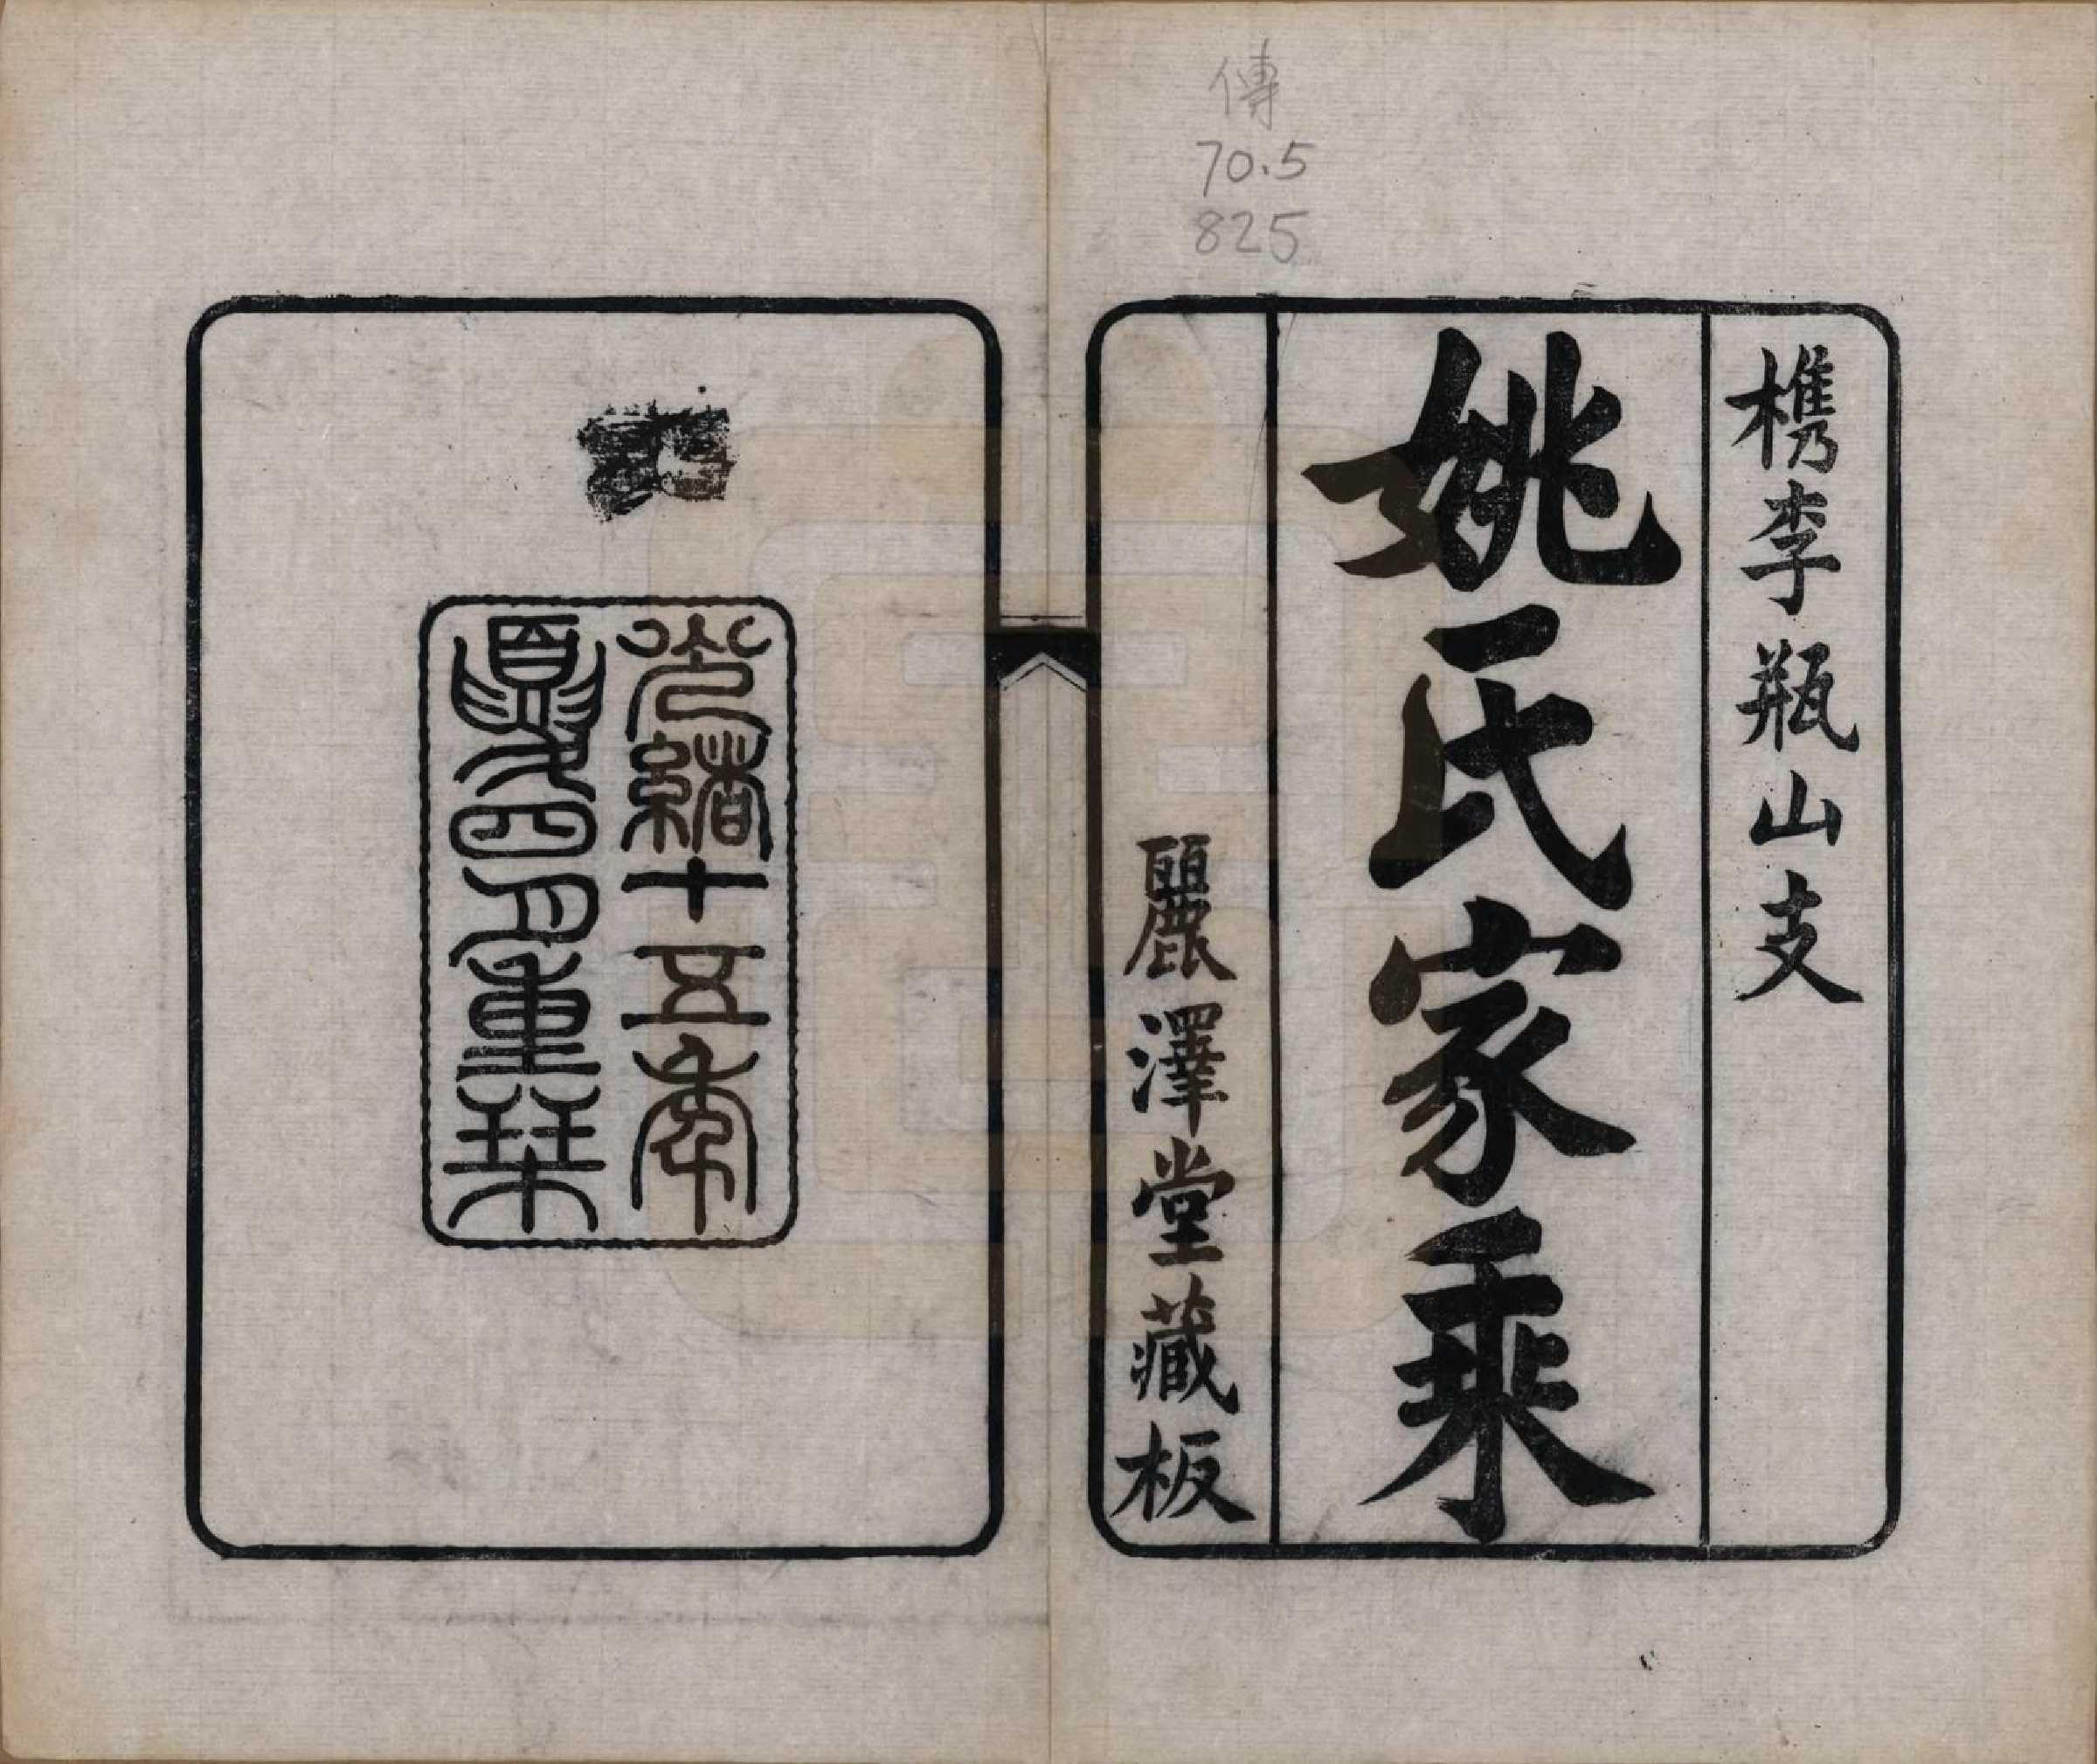 傳
70.5
825
檇李瓶山支
姚氏家乘
麗澤堂藏板
光緒十五年
夏四月重栞